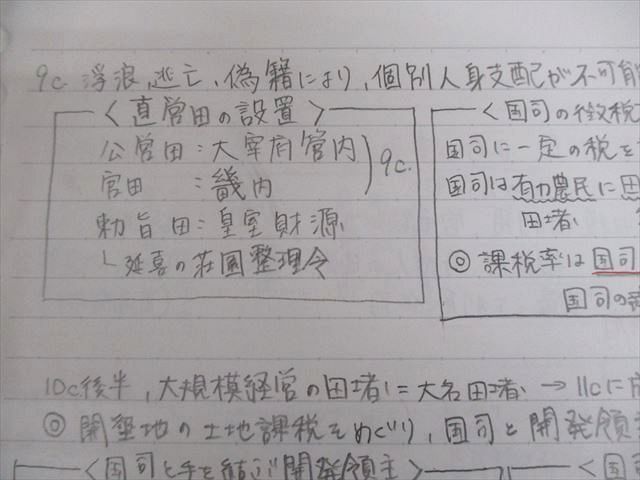 9c. 浮浪、逃亡、偽籍により、個別人身支配が不可能
<直営田の設置>
公営田：大宰府管内
官田　：畿内
9c.
勅旨田：皇室財源
└延喜の荘園整理令
<国司の徴税
国司に一定の税を
国司は有力農民に田
田堵
◎ 課税率は国司
国司の
10c後半、大規模経営の田堵=大名田堵 → 11cに
◎ 開墾地の土地課税をめぐり、国司と開発領主
<国司と手を結ぶ開発領主>
<国司